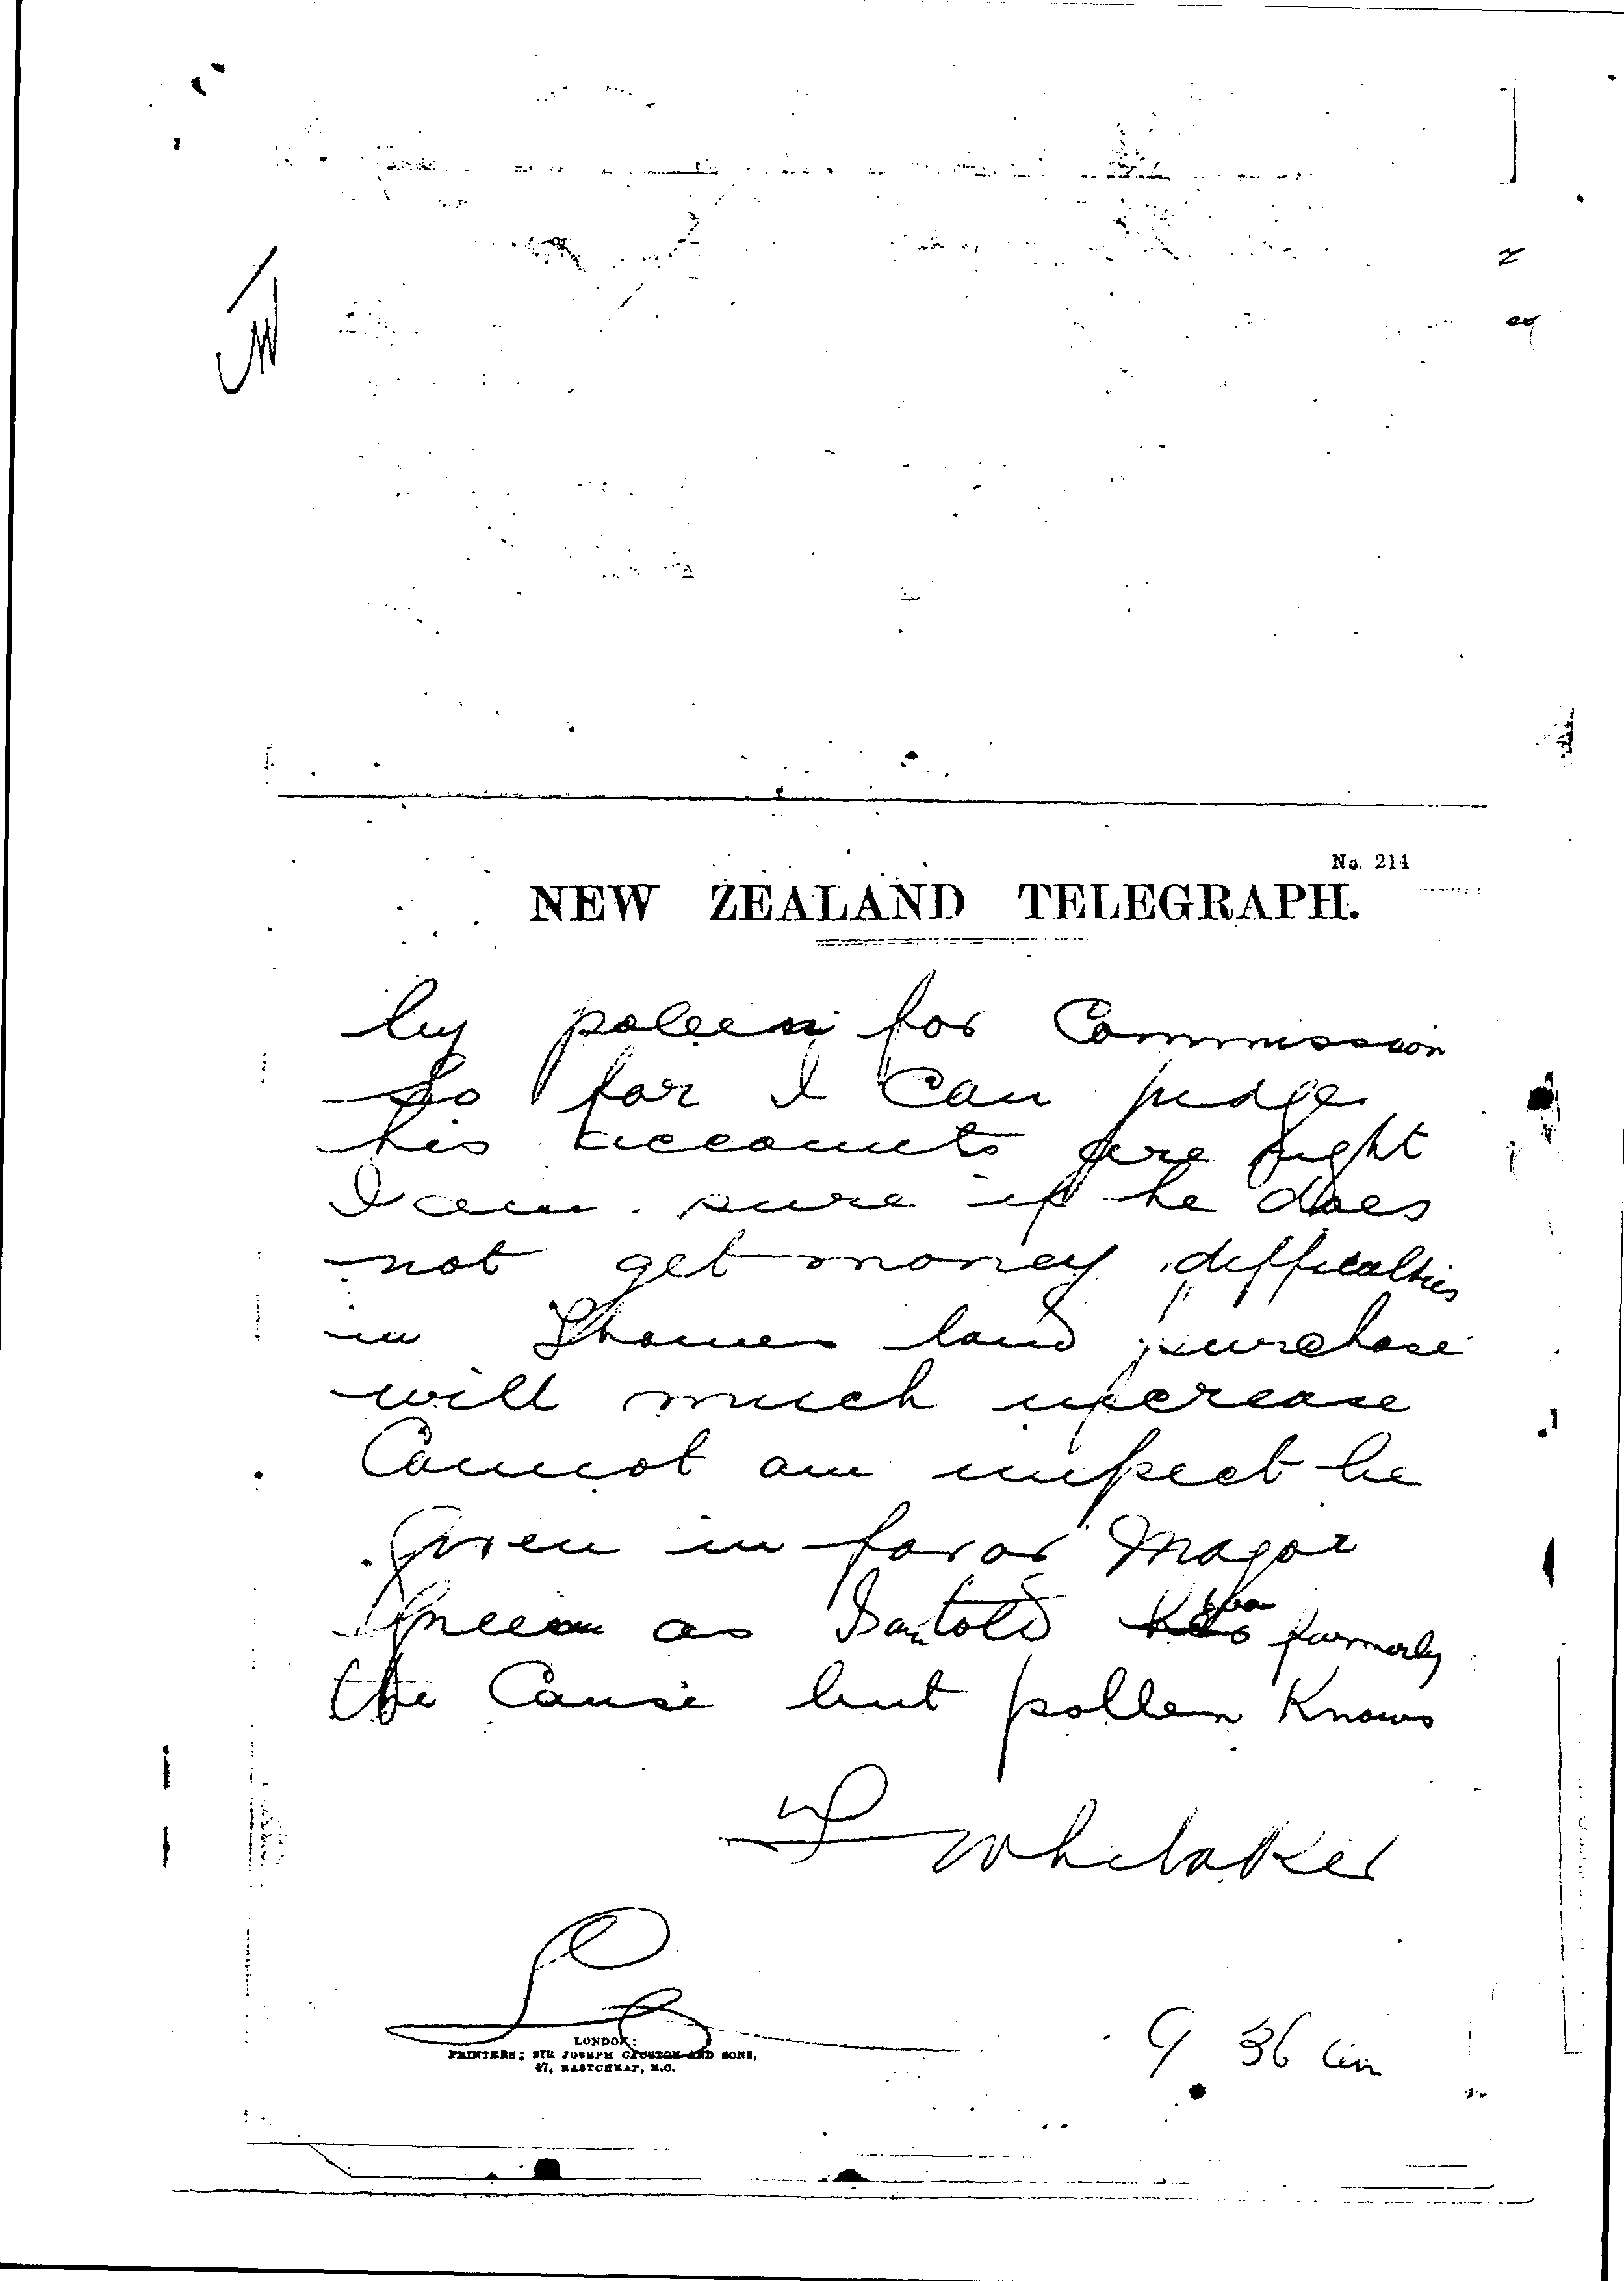 No. 214
NEW ZEALAND TELEGRAPH.
by pollen for Commission
So far I can judge
his accounts are right
I am sure if he does
not get money difficulties
in Thames land purchase
will much increase
Cannot am
given in favor Major
Green as told formerly
the Cause but pollen Knows
F Whitaker
LONDON:
PRINTERS; SIR JOSEPH CAUSTON AND SONS,
47, EASTCHEAP, E.C.
9 36